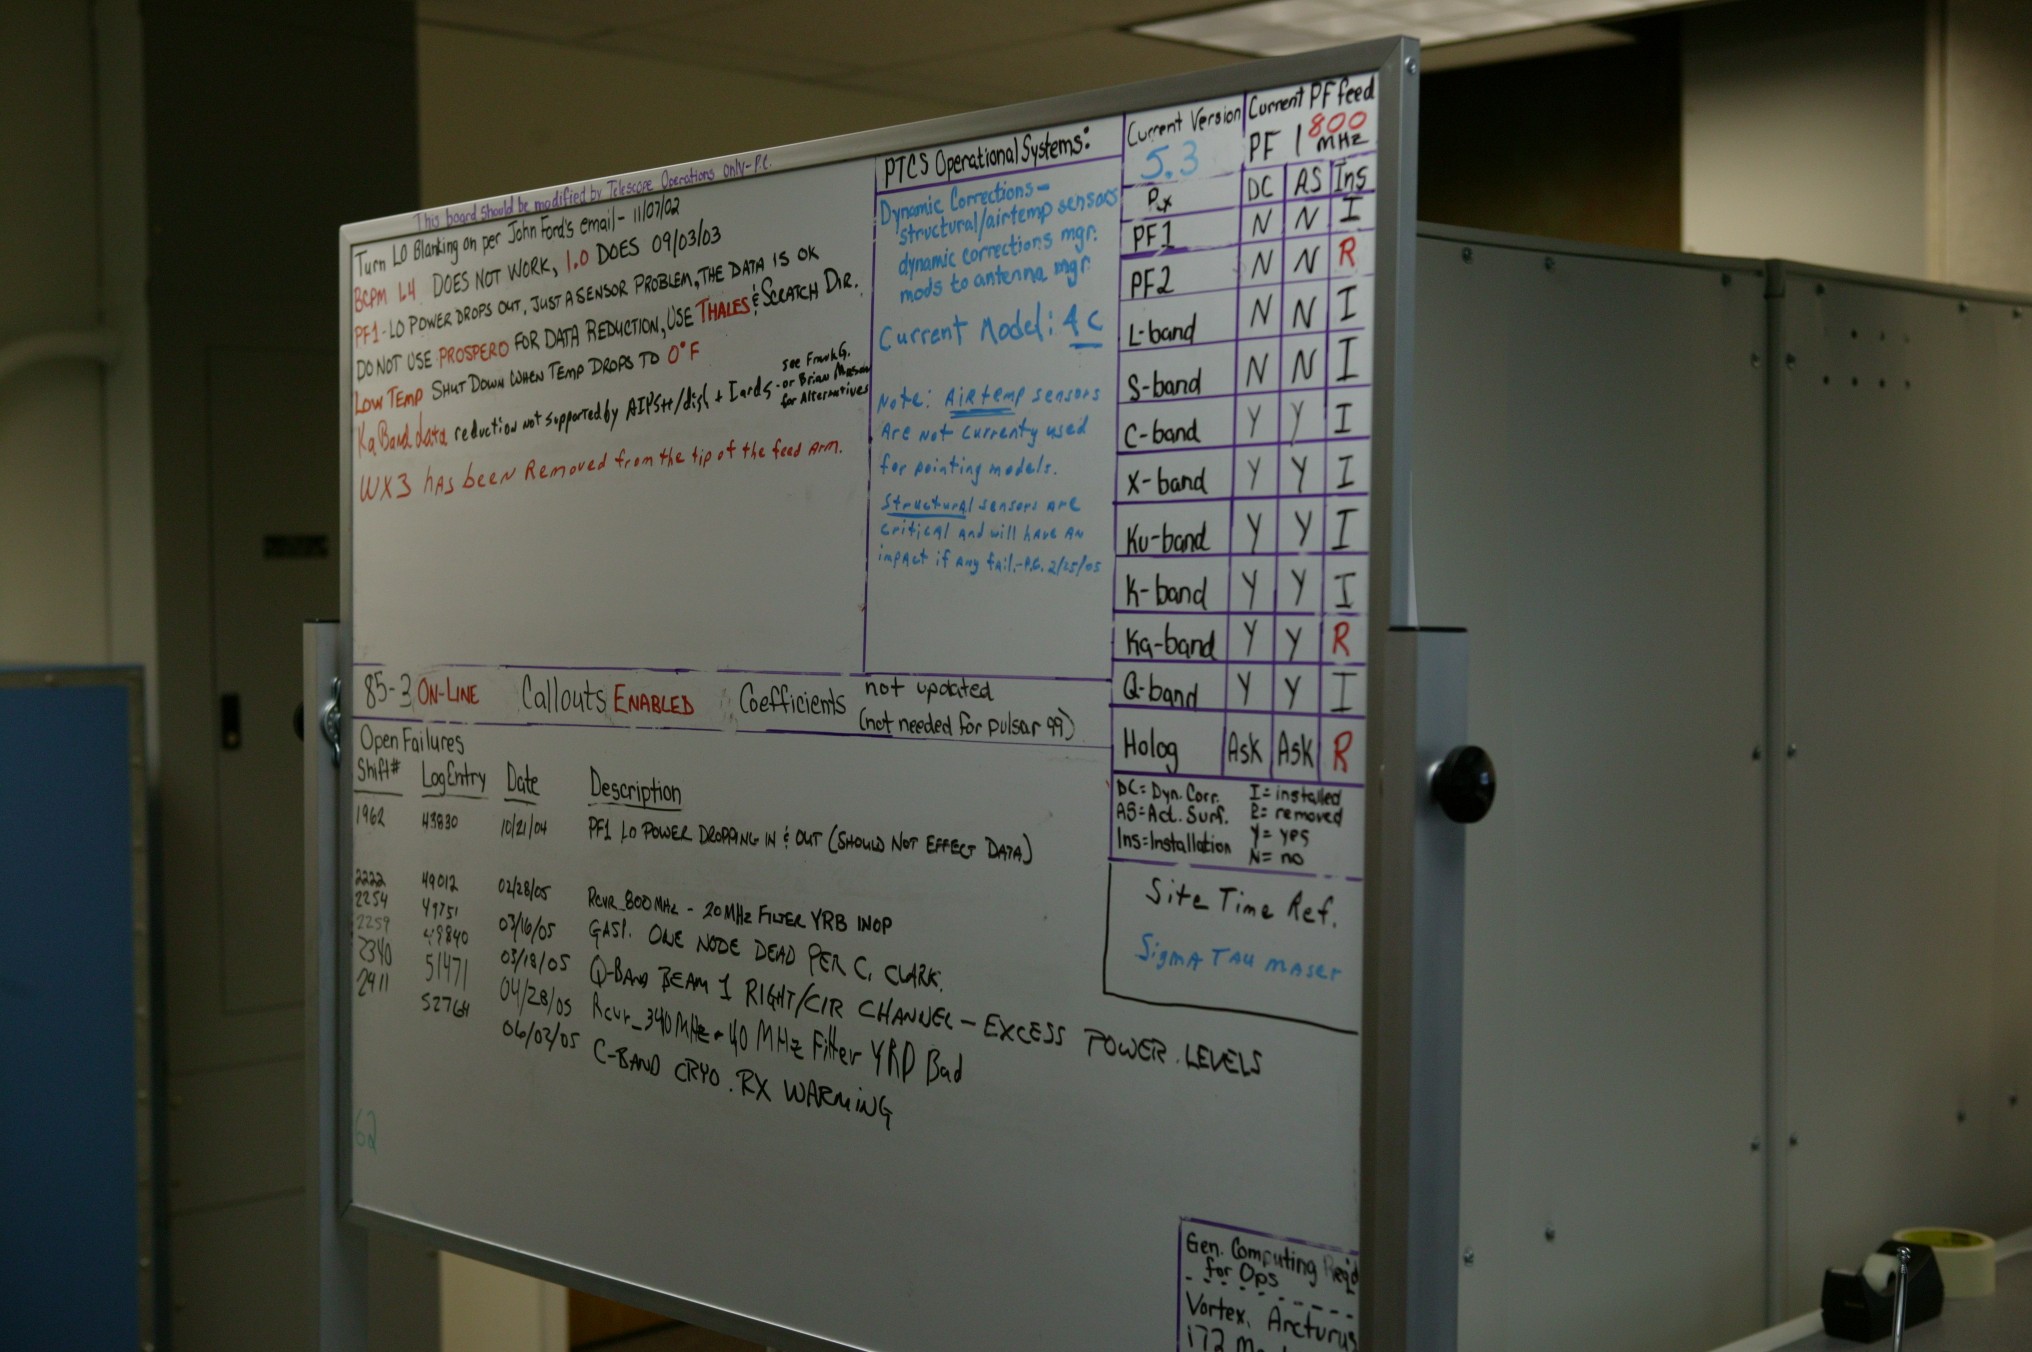 This board should be modified by Telescope Operations only - P.C.
Turn LO Blanking on per John Ford's email - 11/07/02
BCPM 1.4 DOES NOT WORK, 1.0 DOES 09/03/03
PF1 - LO POWER DROPS OUT, JUST A SENSOR PROBLEM, THE DATA IS OK
DO NOT USE PROSPERO FOR DATA REDUCTION, USE THALES & SCRATCH DIR.
LOW TEMP SHUT DOWN WHEN TEMP DROPS TO 0°F
Ka Band data reduction not supported by AIPS++/dish + Iards - see Frank G.
or Brian Mason
for Alternatives
WX3 HAS been Removed from the tip of the feed Arm.
PTCS Operational Systems:
Dynamic Corrections -
structural/airtemp sensors
dynamic corrections mgr.
mods to antenna mgr.
Current Model: 4c
Note: Airtemp sensors
Are Not Currenty used
for pointing models.
Structural sensors are
critical and will have AN
impact if any fail. - P.G. 2/25/05
Current Version
5.3
Current PF feed
PF 1 800 MHz
Rx DC AS Ins
PF1 N N I
PF2 N N R
L-band N N I
S-band N N I
C-band Y Y I
X-band Y Y I
Ku-band Y Y I
K-band Y Y I
Ka-band Y Y R
Q-band Y Y I
Holog Ask Ask R
DC = Dyn. Corr. I = installed
AS = Act. Surf. R = removed
Ins = Installation Y = yes
N = no
Site Time Ref.
Sigma TAU maser
85-3 ON-LINE Callouts ENABLED Coefficients not updated
(not needed for pulsar 99)
Open Failures
Shift# Log Entry Date Description
1962 43830 10/21/04 PF1 LO POWER DROPPING IN & OUT (SHOULD NOT EFFECT DATA)
2222 49012 02/28/05 RCVR_800MHz - 20MHz FILTER YRB INOP
2254 49751 03/16/05 GASP. ONE NODE DEAD PER C. CLARK.
2259 49840 03/18/05 Q-BAND BEAM 1 RIGHT/CIR CHANNEL - EXCESS POWER LEVELS
2340 51471 04/28/05 Rcvr_340MHz - 40 MHz Filter YRP Bad
2411 52764 06/02/05 C-BAND CRYO. RX WARMING
62
Gen. Computing Req'd
for Ops
Vortex, Arcturus